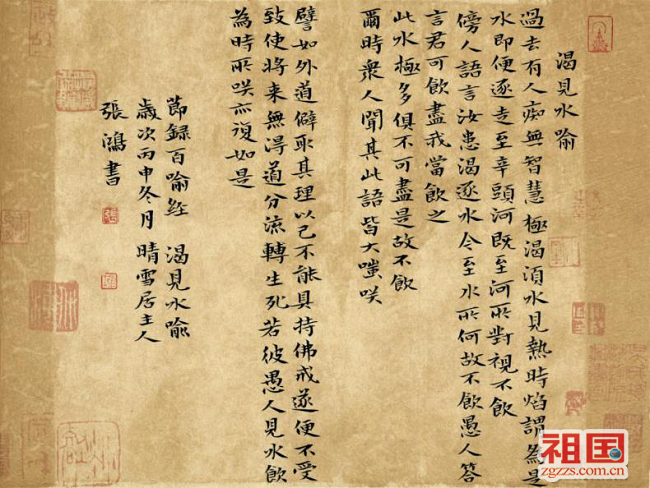 渴見水喻
過去有人癡無智慧極渴湏水見熱時焰謂為是
水即便逐走至辛頭河既至河所對視不飲
傍人語言汝患渴逐水今至水所何故不飲愚人答
言君可飲盡我當飲之
此水極多俱不可盡是故不飲
爾時衆人聞其此語皆大嗤咲
譬如外道僻取其理以己不能具持佛戒遂便不受
致使将来無得道分流轉生死若彼愚人見水飲
為時所咲亦復如是
節録百喻经 渴見水喻
歲次丙申冬月 晴雪居主人
張鴻書
祖国
zgzzs.com.cn